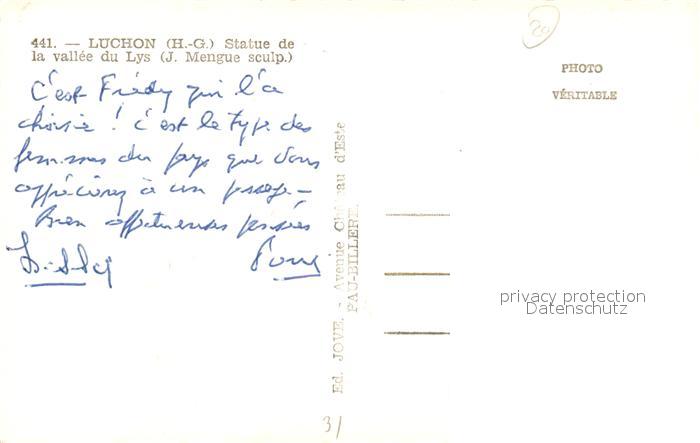 441. — LUCHON (H.-G.) Statue de
la vallée du Lys (J. Mengue sculp.)
C'est Frédy qui l'a
choisie ! c'est le type des
femmes du pays que vous
à un
Bien affectueuses pensées
PHOTO
VÉRITABLE
Ed. JOVE. - Avenue Château d'Este
PAU-BILLERE.
privacy protection
Datenschutz
20
31